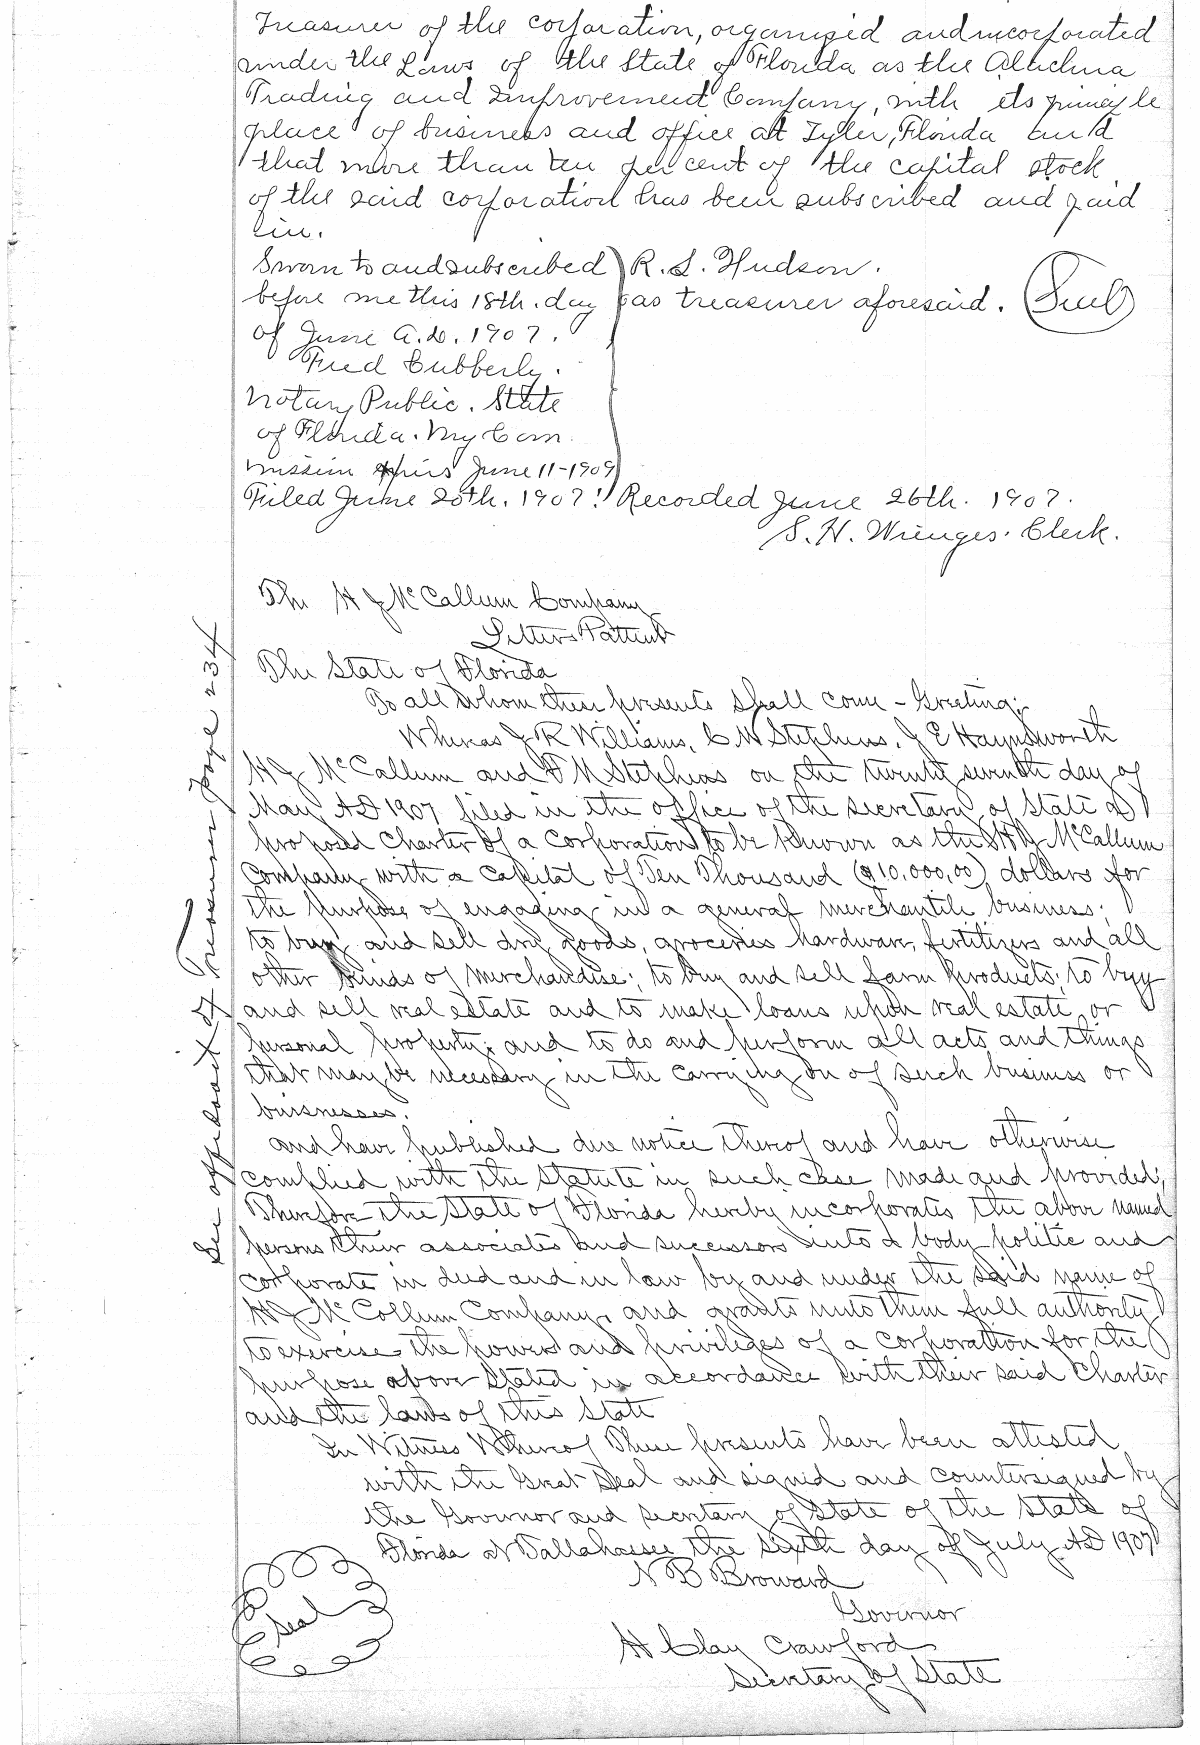 Treasurer of the corporation, organized and incorporated
under the Laws of the State of Florida as the Alachua
Trading and Improvement Company, with its principle
place of business and office at Tyler, Florida and
that more than ten per cent of the capital stock
of the said corporation has been subscribed and paid
in.
Sworn to and subscribed ) R. S. Hudson.
before me this 18th. day as treasurer aforesaid. (Seal)
of June A.D. 1907.
Fred Cubberly.
Notary Public. State
of Florida. My Com
mission expires June 11-1909
Filed June 20th. 1907! Recorded June 26th. 1907.
S. H. Wienges. Clerk.
The H J McCallum Company
Letters Pattent
The State of Florida
To all Whom these presents shall come - Greeting;
Whereas J R Williams, C M Stephens, J E Haynsworth
H J McCallum and F M Stephens on the twenty seventh day of
May AD 1907 filed in the office of the secretary of State a
proposed charter of a corporation to be known as the H J McCallum
Company with a capital of Ten Thousand ($10,000,00) dollars for
the purpose of engaging in a general merchantile business;
to buy and sell dry goods, groceries hardware, fertilizers and all
other kinds of merchandise; to buy and sell farm products; to buy
and sell real estate and to make loans upon real estate or
personal property; and to do and perform all acts and things
that may be necessary in the carrying on of such business or
buisnesses.
and have published due notice thereof and have otherwise
complied with the statute in such case made and provided;
Therefore the State of Florida hereby incorporates the above named
persons their associates and successors into a body politic and
corporate in deed and in law by and under the said name of
H J McCollum Company, and grants unto them full authority
to exercise the powers and privileges of a corporation for the
purpose above stated in accordance with their said Charter
and the laws of this State
In Witness Whereof These presents have been attested
with the Great Seal and signed and countersigned by
the Governor and secretary of State of the State of
Florida at Tallahassee the sixth day of July AD 1907
N B Broward
Governor
Seal
H Clay Crawford
Secretary of State
See affidavit of Treasurer Page 234